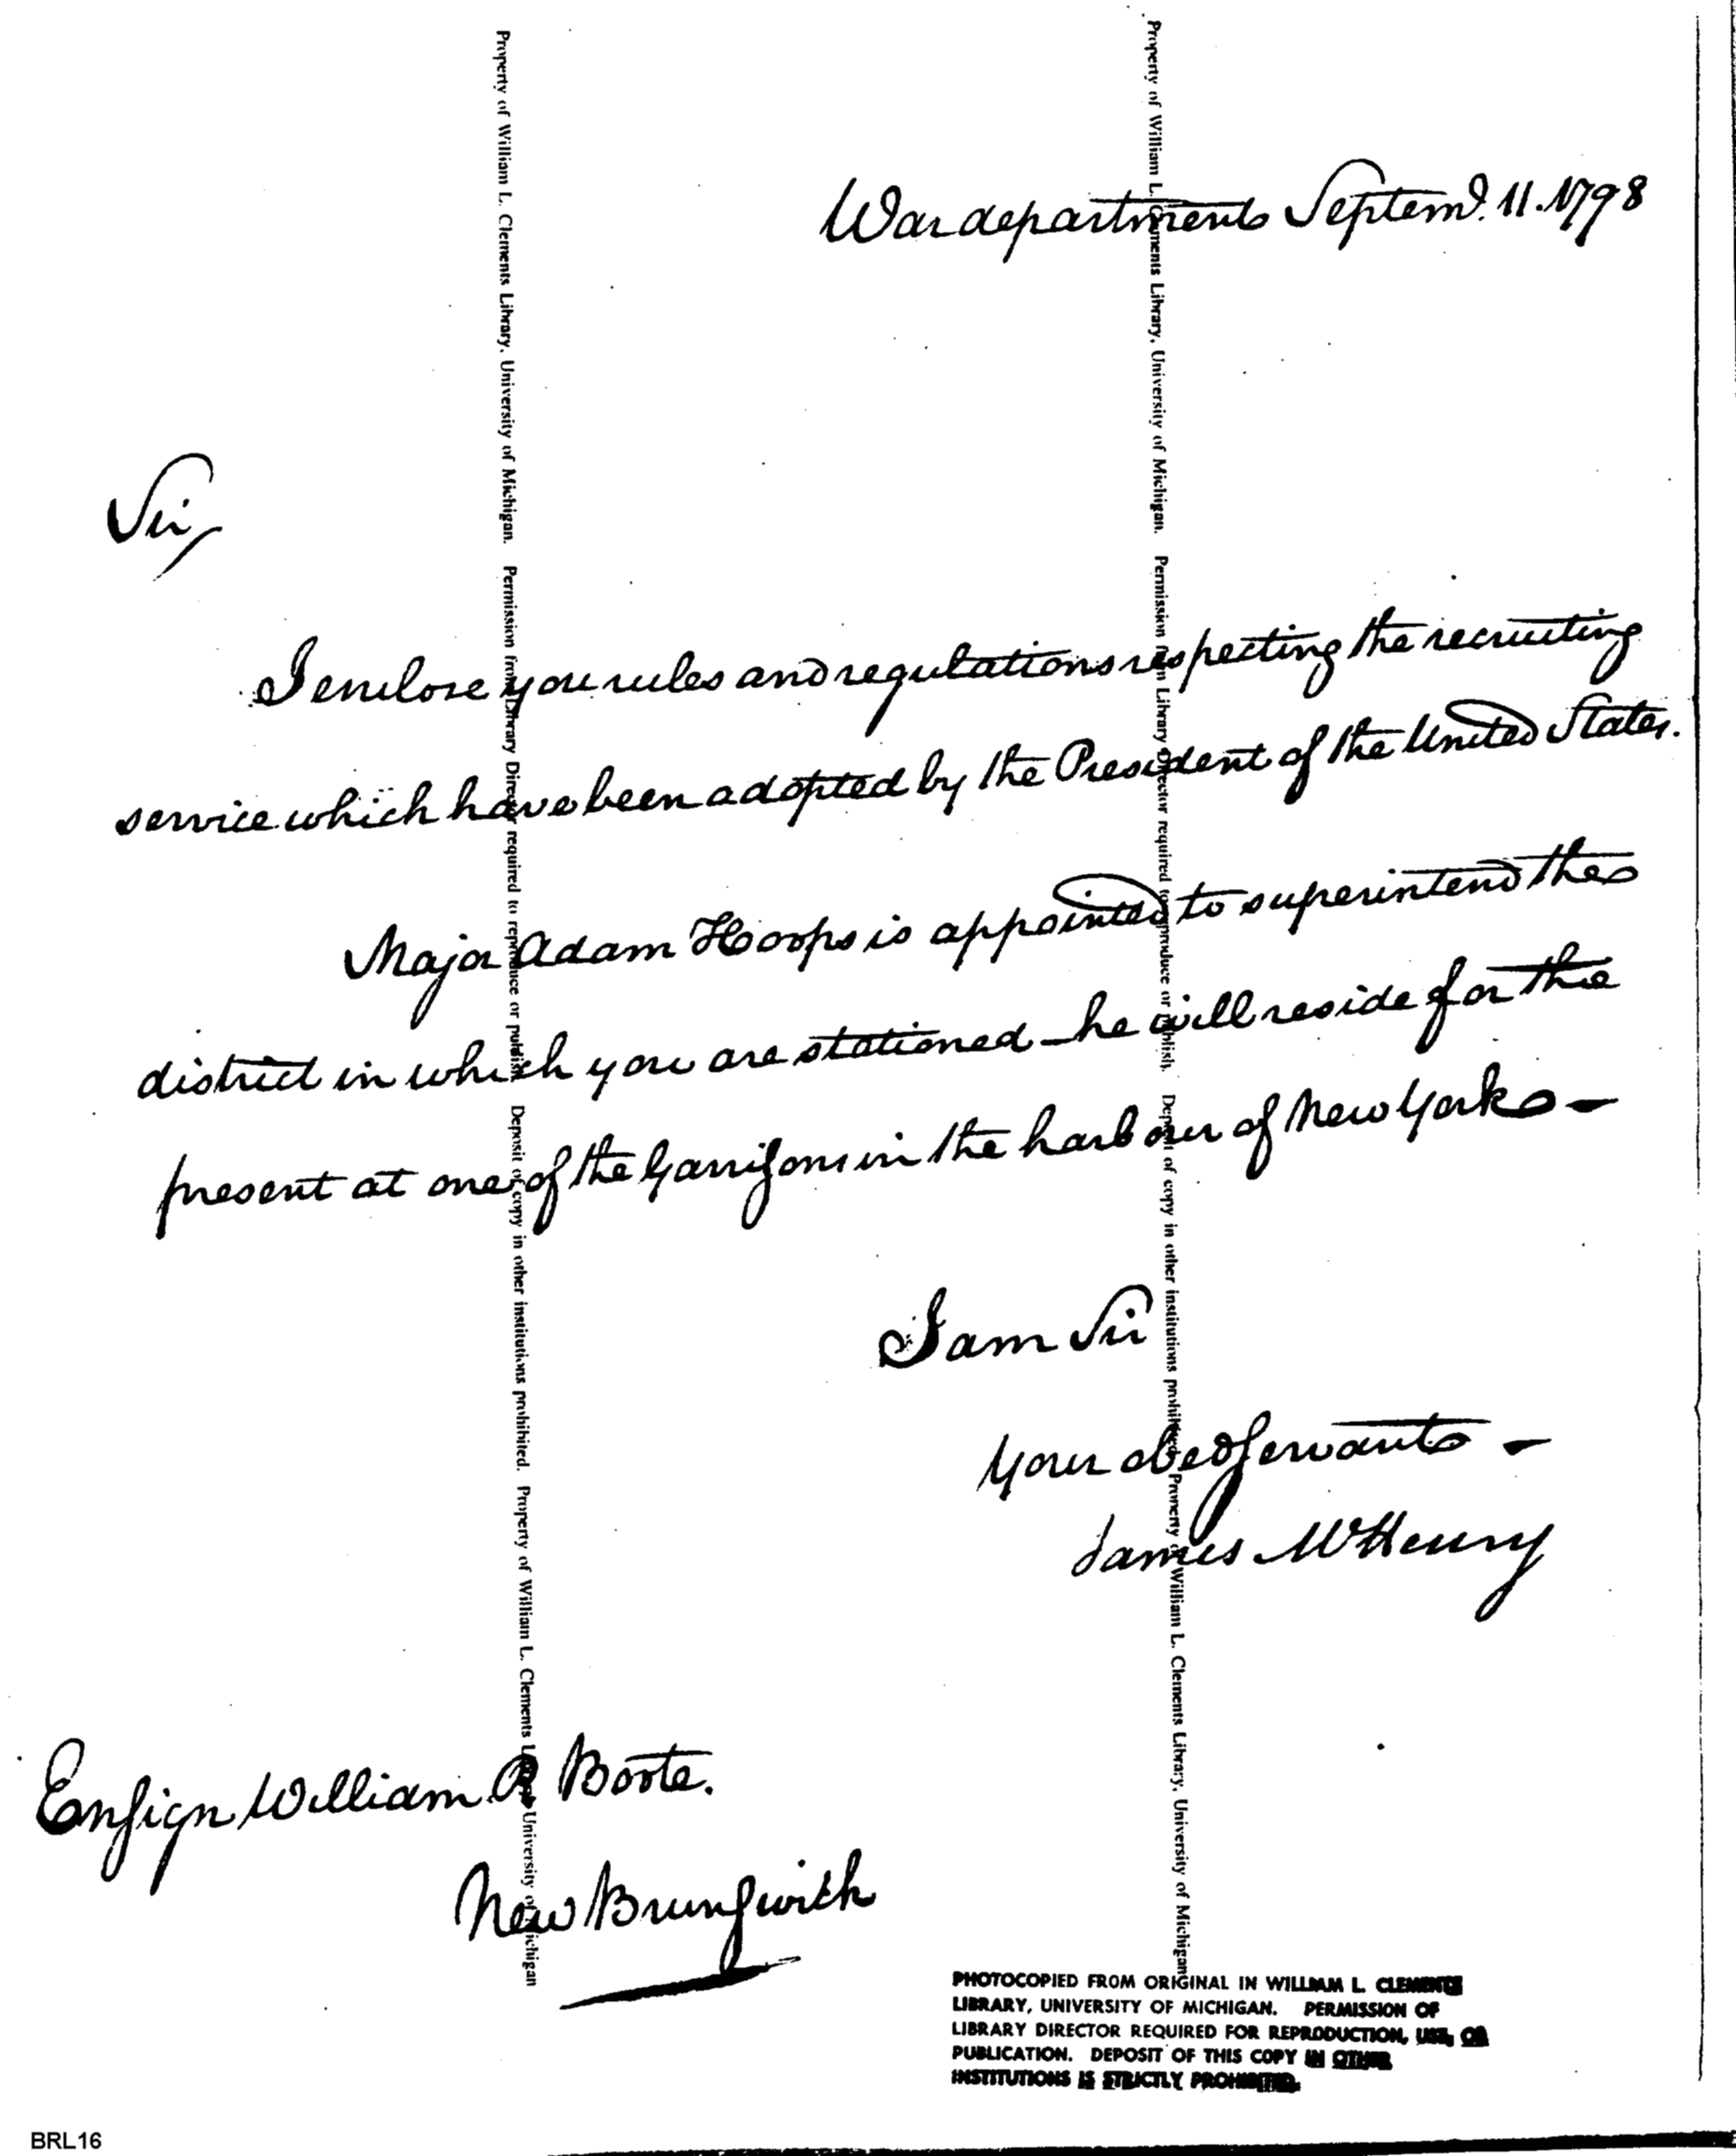 War department Septemr. 11. 1798
Sir,
I enclose you rules and regulations respecting the recruiting
service which have been adopted by the President of the United States.
Major Adam Hoops is appointed to superintend the
district in which you are stationed - he will reside for the
present at one of the Garrisons in the harbour of New York -
I am Sir
your obed servant -
James McHenry
Ensign William R Boote.
New Brunswick
Property of William L. Clements Library, University of Michigan. Permission from Library Director required to reproduce or publish. Deposit of copy in other institutions prohibited. Property of William L. Clements Library University of Michigan
Property of William L. Clements Library, University of Michigan. Permission from Library Director required to reproduce or publish. Deposit of copy in other institutions prohibited. Property of William L. Clements Library, University of Michigan
PHOTOCOPIED FROM ORIGINAL IN WILLIAM L. CLEMENTS
LIBRARY, UNIVERSITY OF MICHIGAN. PERMISSION OF
LIBRARY DIRECTOR REQUIRED FOR REPRODUCTION, USE, OR
PUBLICATION. DEPOSIT OF THIS COPY IN OTHER
INSTITUTIONS IS STRICTLY PROHIBITED.
BRL16